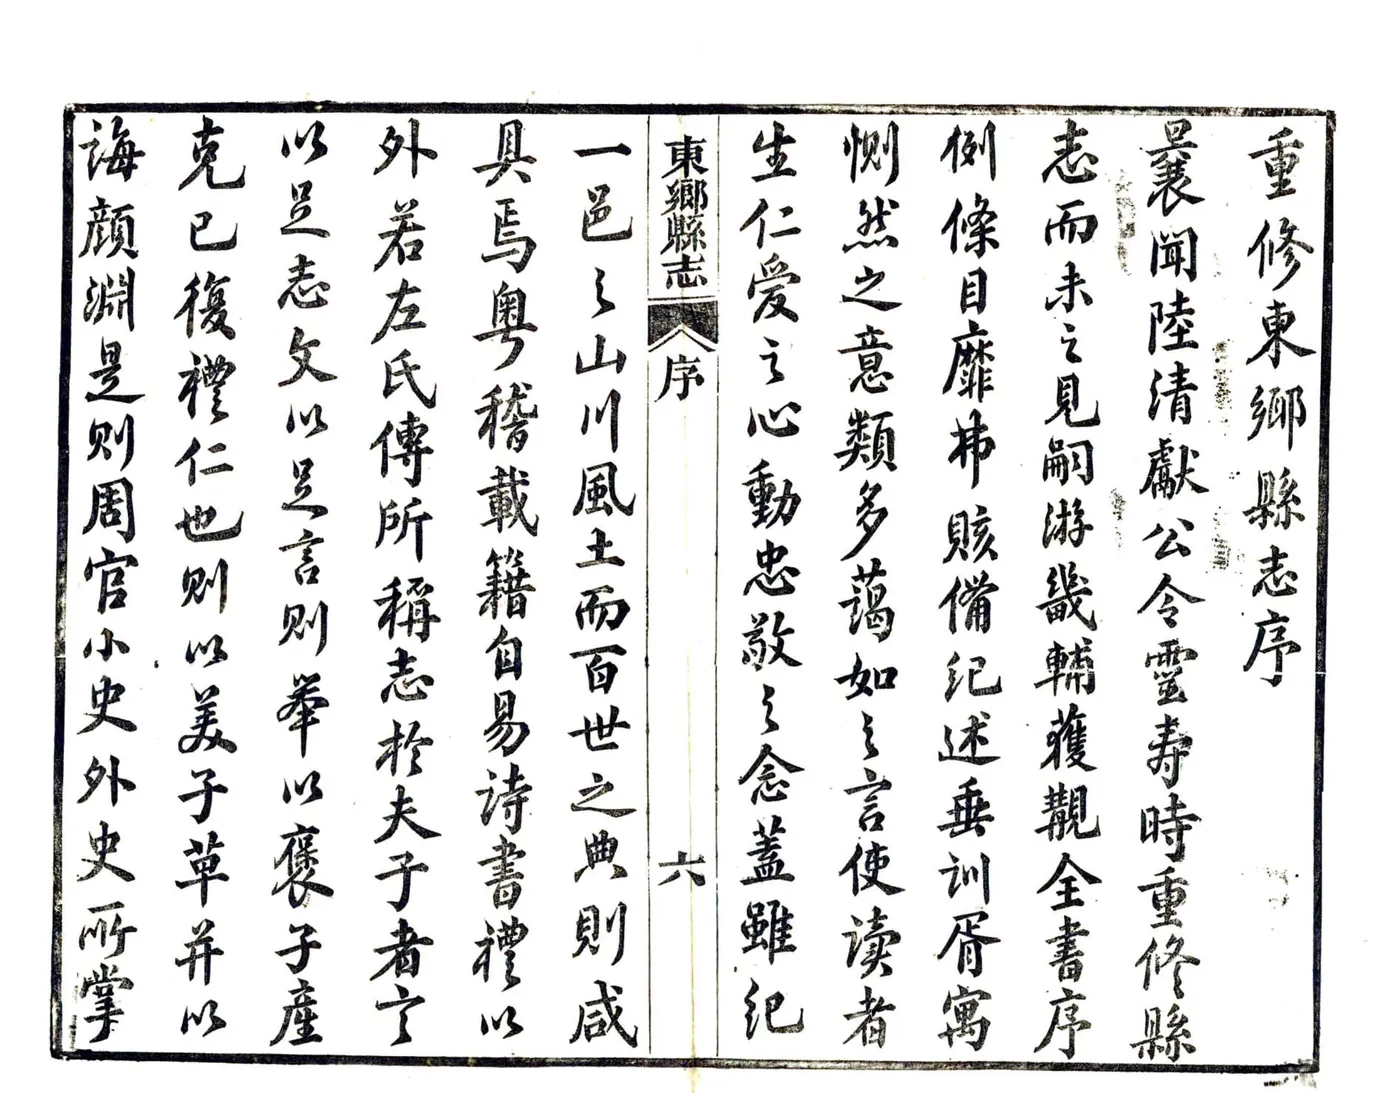 重修東鄉縣志序
曩聞陸清獻公令靈壽時重修縣
志而未之見嗣游畿輔獲覩全書序
例條目靡弗賅備紀述垂訓胥寓
惻然之意類多藹如之言使读者
生仁爱之心動忠敬之念蓋雖紀
東鄉縣志
序
六
一邑之山川風土而百世之典則咸
具焉粤稽載籍自易诗書禮以
外若左氏傳所稱志於夫子者言
以足志文以足言则举以褒子產
克己復禮仁也则以美子草并以
誨顔淵是则周官小史外史所掌